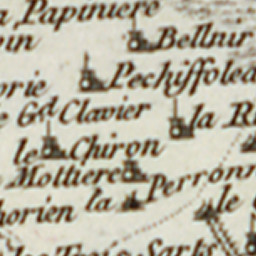 Papiniere
Bellnir
Pechiffolea
Gd. Clavier
la R
le Chiron
Mottiere
Perronn
la
le
horien
Trois Sarts